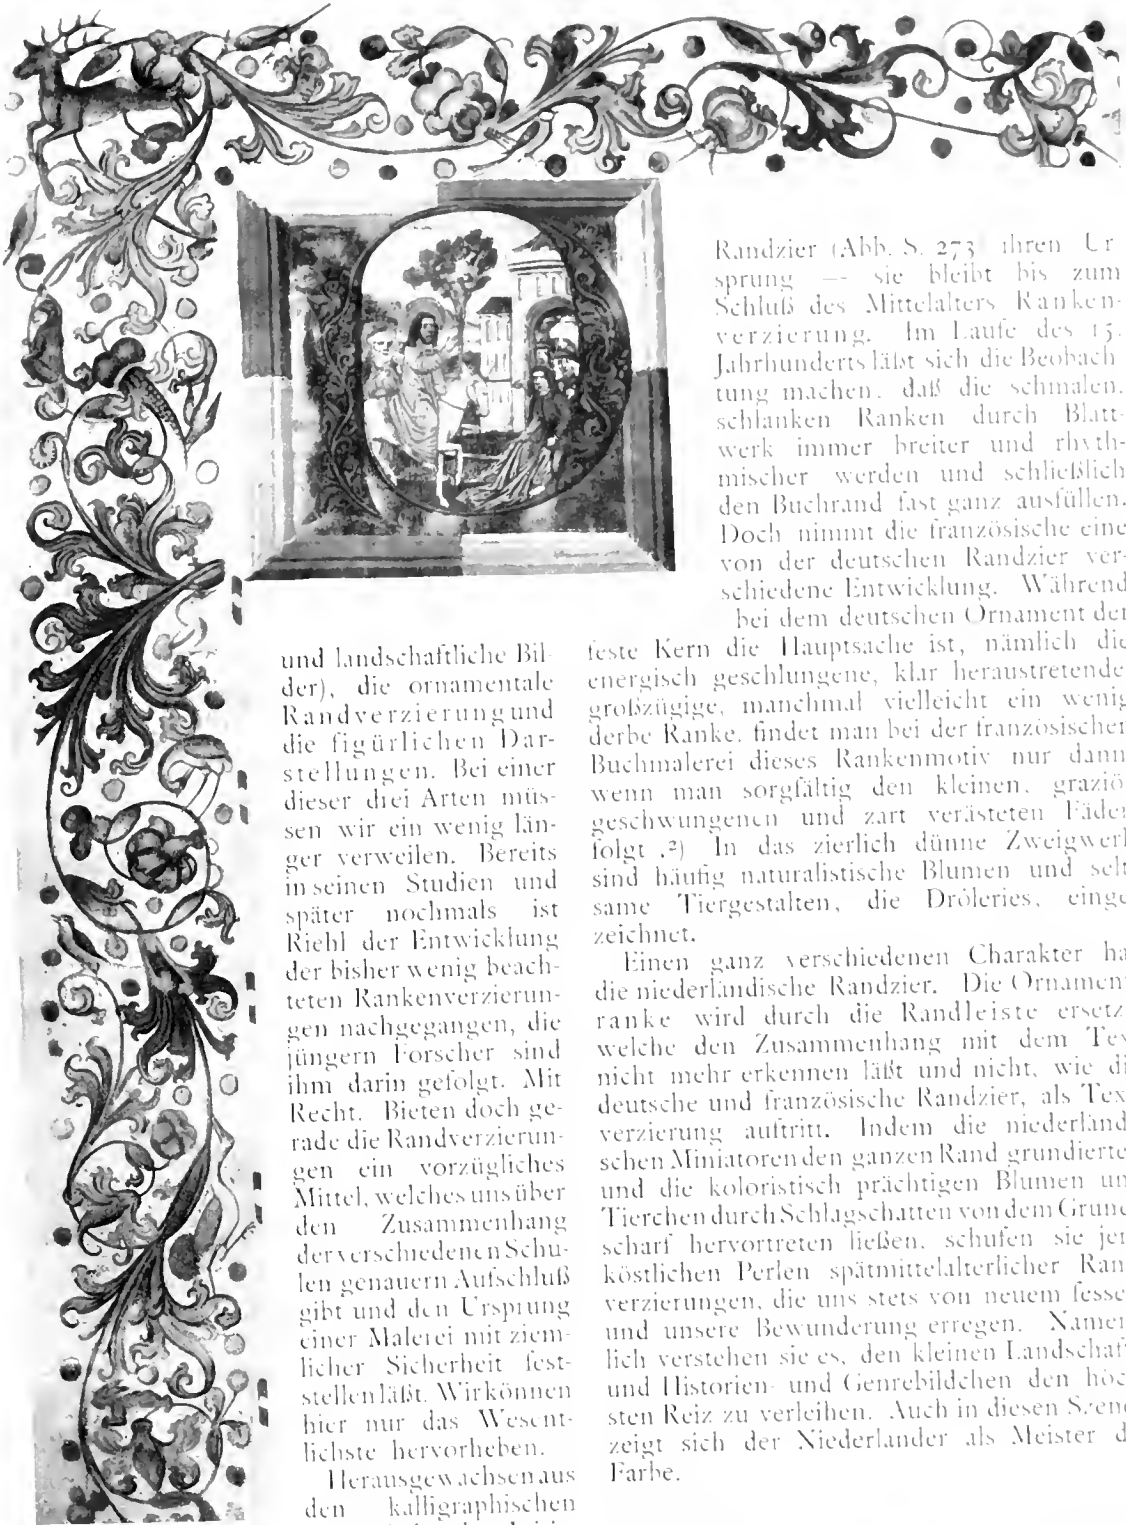 und landschaftliche Bil-
der), die ornamentale
Randverzierung und
die figürlichen Dar-
stellungen. Bei einer
dieser drei Arten müs-
sen wir ein wenig län-
ger verweilen. Bereits
in seinen Studien und
später nochmals ist
Riehl der Entwicklung
der bisher wenig beach-
teten Rankenverzierun-
gen nachgegangen, die
jüngern Forscher sind
ihm darin gefolgt. Mit
Recht. Bieten doch ge-
rade die Randverzierun-
gen ein vorzügliches
Mittel, welches uns über
den Zusammenhang
der verschiedenen Schu-
len genauern Aufschluß
gibt und den Ursprung
einer Malerei mit ziem-
licher Sicherheit fest-
stellen läßt. Wir können
hier nur das Wesent-
lichste hervorheben.
Herausgewachsen aus
den kalligraphischen
Randzier (Abb. S. 273 ihren Ur
sprung — sie bleibt bis zum
Schluß des Mittelalters Ranken-
verzierung. Im Laufe des 15.
Jahrhunderts läßt sich die Beobach
tung machen, daß die schmalen,
schlanken Ranken durch Blatt-
werk immer breiter und rhyth-
mischer werden und schließlich
den Buchrand fast ganz ausfüllen.
Doch nimmt die französische eine
von der deutschen Randzier ver-
schiedene Entwicklung. Während
bei dem deutschen Ornament der
feste Kern die Hauptsache ist, nämlich die
energisch geschlungene, klar heraustretende
großzügige, manchmal vielleicht ein wenig
derbe Ranke, findet man bei der französischen
Buchmalerei dieses Rankenmotiv nur dann
wenn man sorgfältig den kleinen, graziö
geschwungenen und zart verästeten Fäder
folgt .²) In das zierlich dünne Zweigwerk
sind häufig naturalistische Blumen und selt
same Tiergestalten, die Drôleries, einge
zeichnet.
Einen ganz verschiedenen Charakter ha
die niederländische Randzier. Die Ornament
ranke wird durch die Randleiste ersetz
welche den Zusammenhang mit dem Tex
nicht mehr erkennen läßt und nicht, wie di
deutsche und französische Randzier, als Tex
verzierung auftritt. Indem die niederländ
schen Miniatoren den ganzen Rand grundierte
und die koloristisch prächtigen Blumen un
Tierchen durch Schlagschatten von dem Grund
scharf hervortreten ließen, schufen sie jen
köstlichen Perlen spätmittelalterlicher Ran
verzierungen, die uns stets von neuem fesse
und unsere Bewunderung erregen. Namen
lich verstehen sie es, den kleinen Landschaf
und Historien- und Genrebildchen den höc
sten Reiz zu verleihen. Auch in diesen Szene
zeigt sich der Niederländer als Meister d
Farbe.